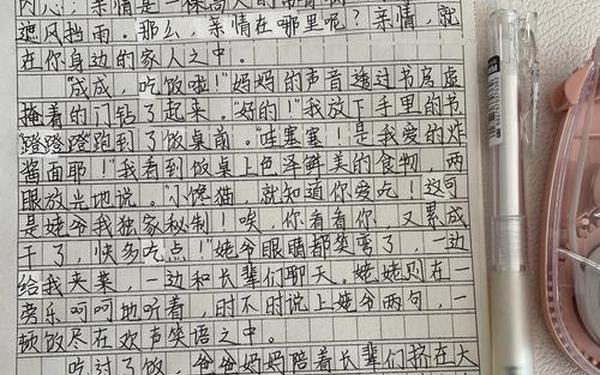 内心；亲情是一棵高大的
遮风挡雨。那么，亲情在哪里呢？亲情，就
在你身边的家人之中。
“成成，吃饭啦！”妈妈的声音透过书房虚
掩着的门钻了起来。“好的！”我放下手里的书，
“蹬蹬蹬”跑到了饭桌前。“哇塞塞！是我爱的炸
酱面耶！”我看到饭桌上色泽鲜美的食物，两
眼放光地说。“小馋猫，就知道你爱吃！这可
是姥爷我独家秘制！唉，你看看你，又累成
干了，快多吃点！”姥爷眼睛都笑弯了，一边
给我夹菜，一边和长辈们聊天。姥姥则在一
旁乐呵呵地听着，时不时说上姥爷两句，一
顿饭尽在欢声笑语之中。
吃过了饭，爸爸妈妈陪着长辈们挤在大